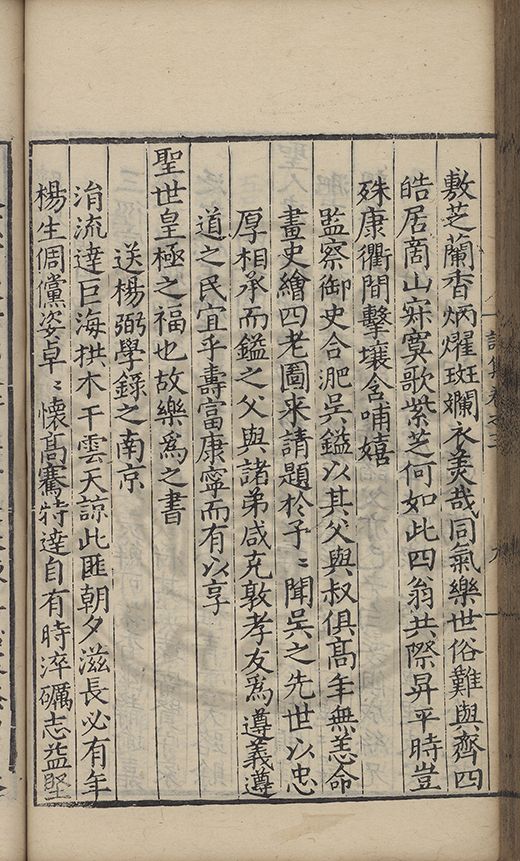 敷芝蘭香炳燿斑斕衣羙哉同氣樂世俗難與齊四
皓居商山寂寞歌紫芝何如此四翁共際昇平時豈
殊康衢間擊壤含哺嬉
監察御史合肥吳鎰以其父與叔俱髙年無恙命
畫史繪四老圖来請題於予〻聞吳之先世以忠
厚相承而鎰之父與諸弟咸克敦孝友為遵義遵
道之民宜乎壽富康寧而有以享
聖世皇極之福也故樂為之書
送楊弼學録之南京
涓流達巨海拱木干雲天諒此匪朝夕滋長必有年
楊生倜儻姿卓〻懷髙騫特達自有時淬礪志益堅